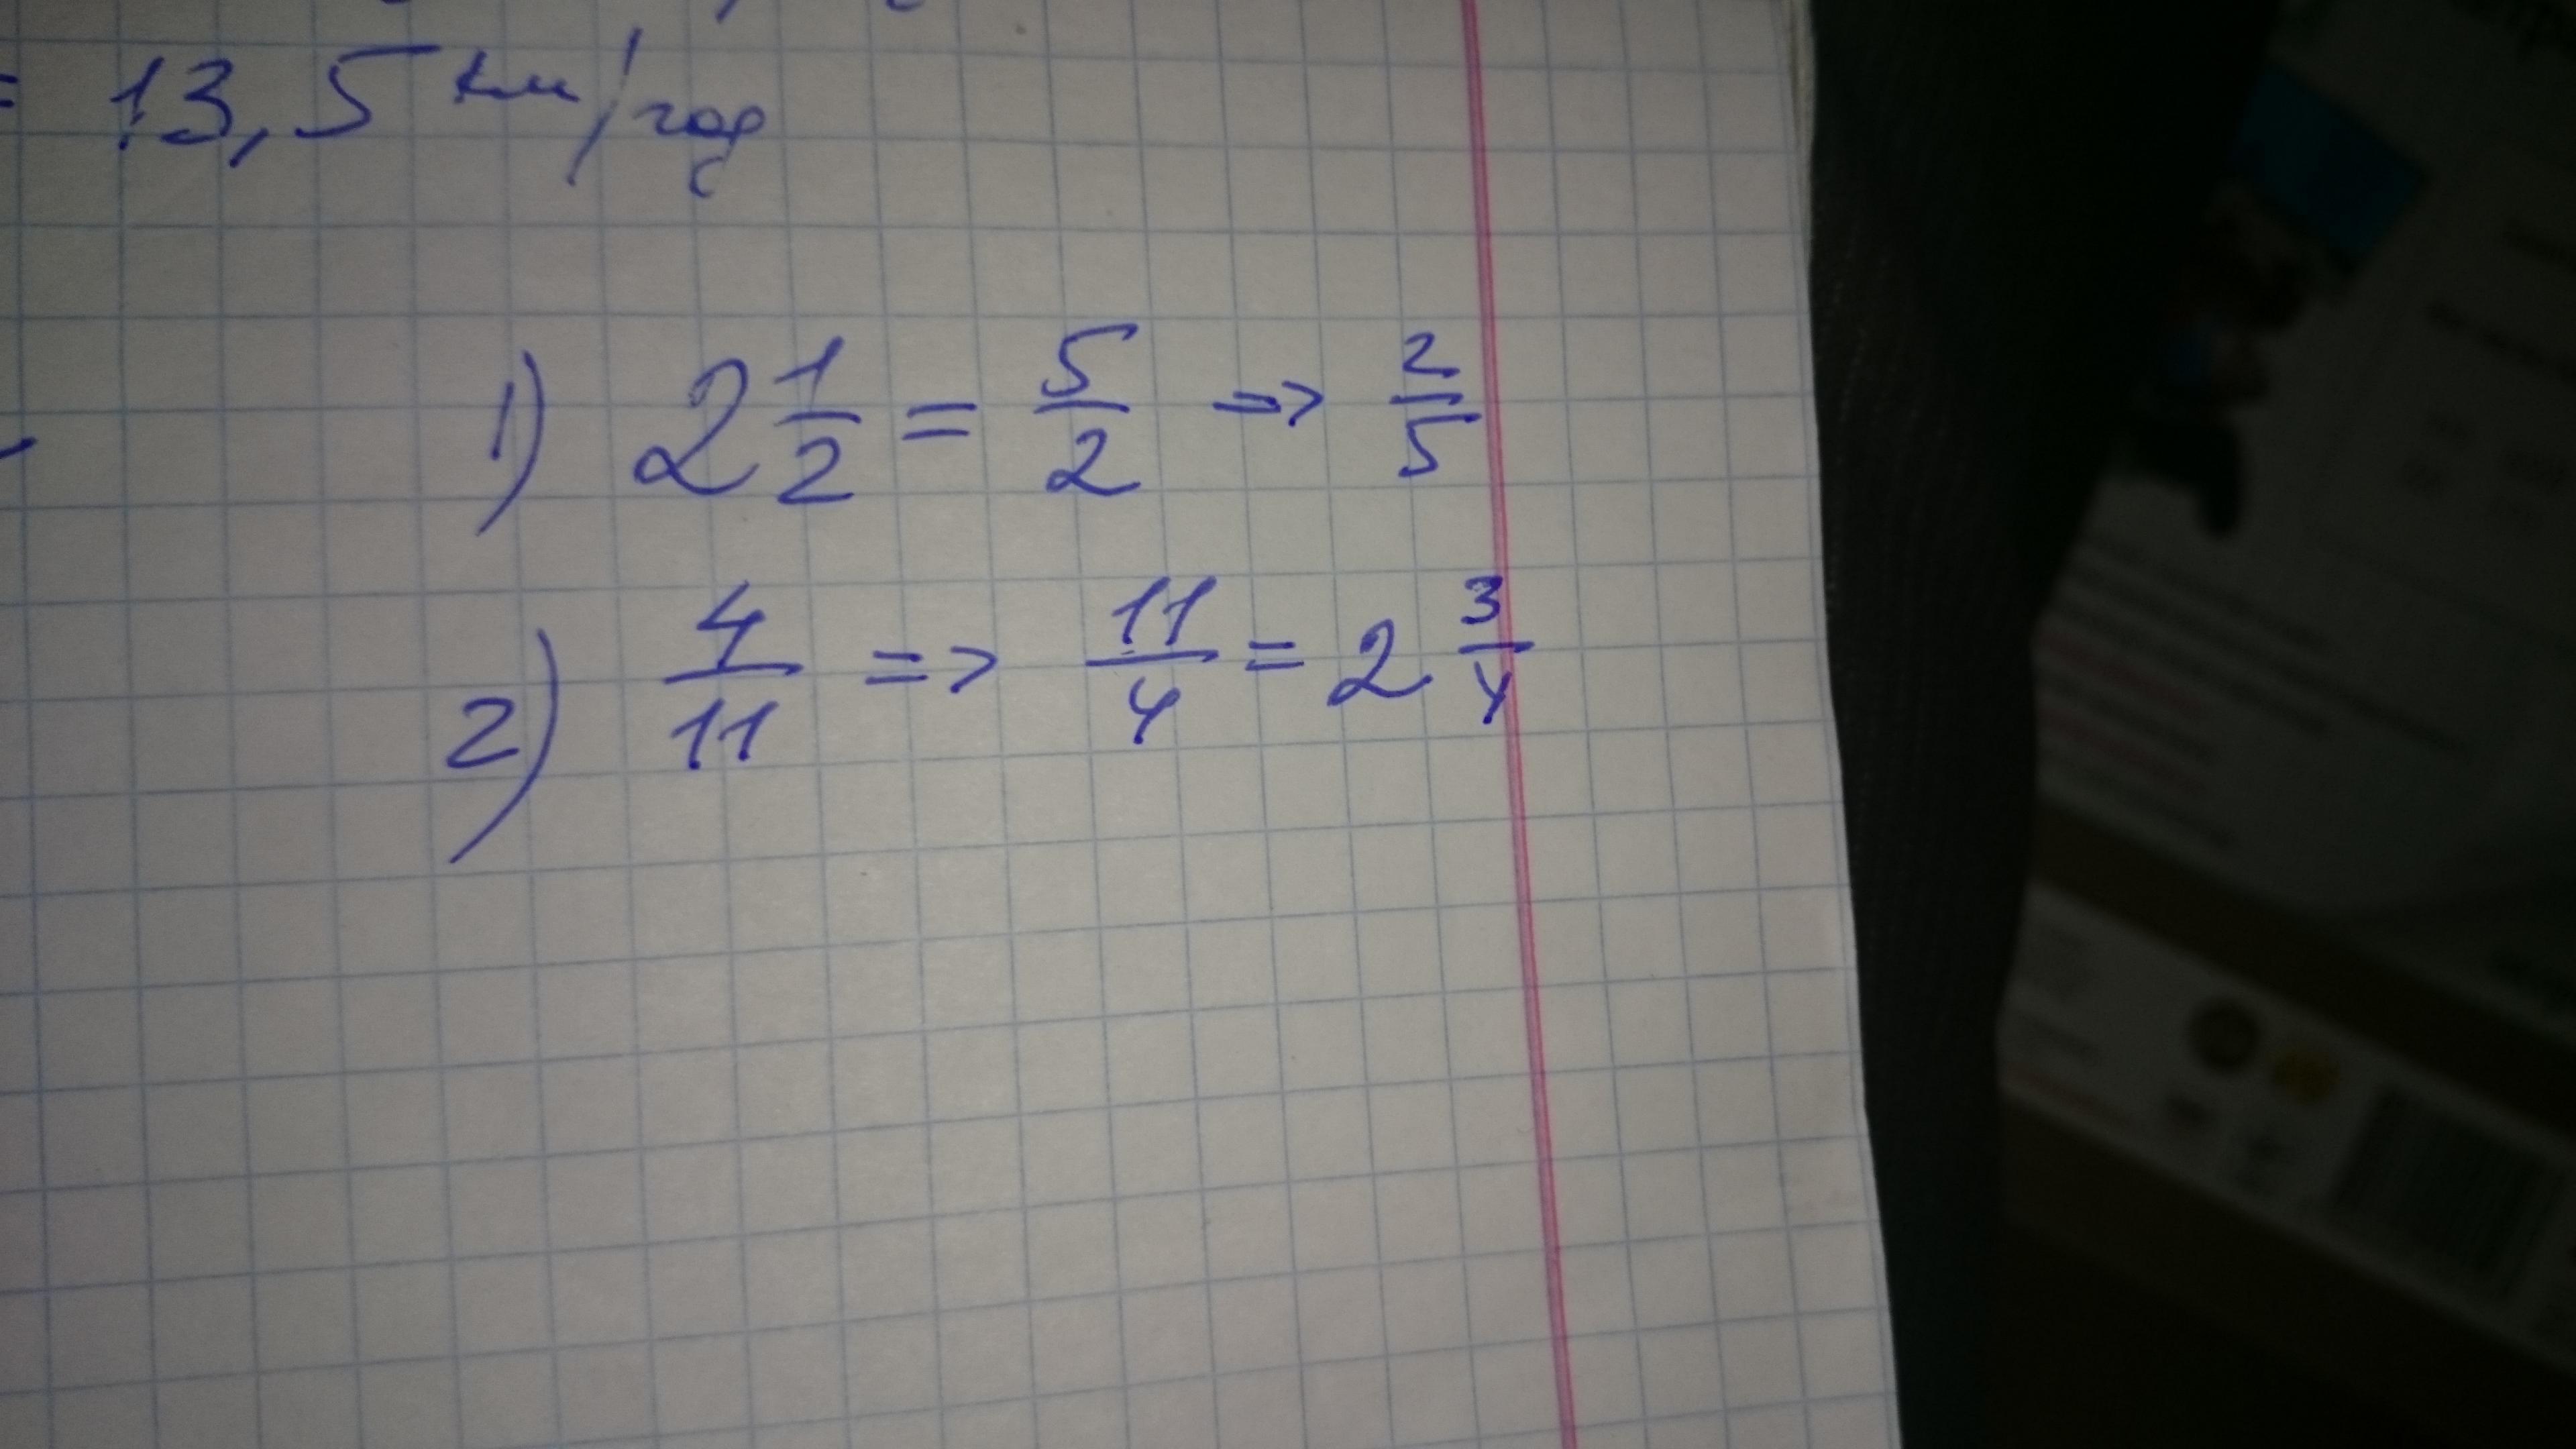 = 13,5 км/год
1) 2 1/2 = 5/2 => 2/5
2) 4/11 => 11/4 = 2 3/4